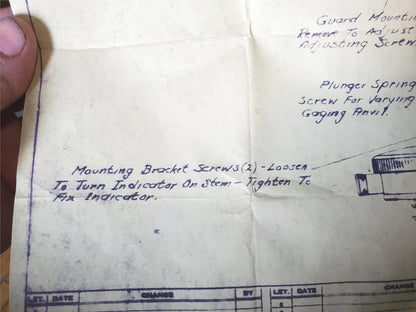 Guard Mountin
Remove To Adjust
Adjusting Screw
Plunger Spring
Screw For Varying
Gaging Anvil.
Mounting Bracket Screws (2) - Loosen
To Turn Indicator On Stem - Tighten To
Fix Indicator.
LET. DATE CHANGE BY LET. DATE CHANGE